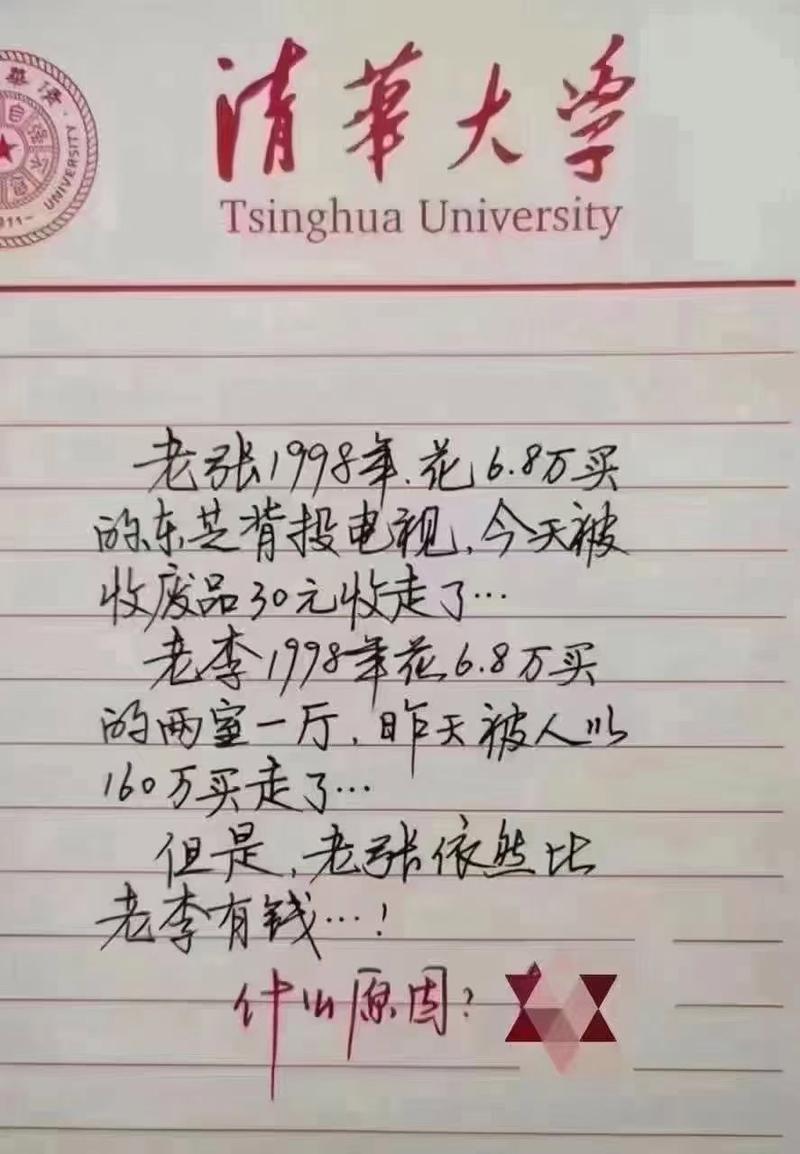 清華大学
Tsinghua University
華清
自强不息
UNIVERSITY
1911-
老张1998年.花6.8万买
的东芝背投电视,今天被
收废品30元收走了…
老李1998年花6.8万买
的两室一厅,昨天被人以
160万买走了…
但是,老张依然比
老李有钱…!
什么原因?